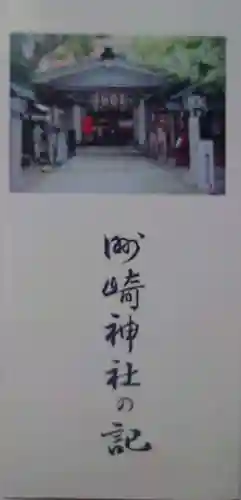 洲崎神社の記